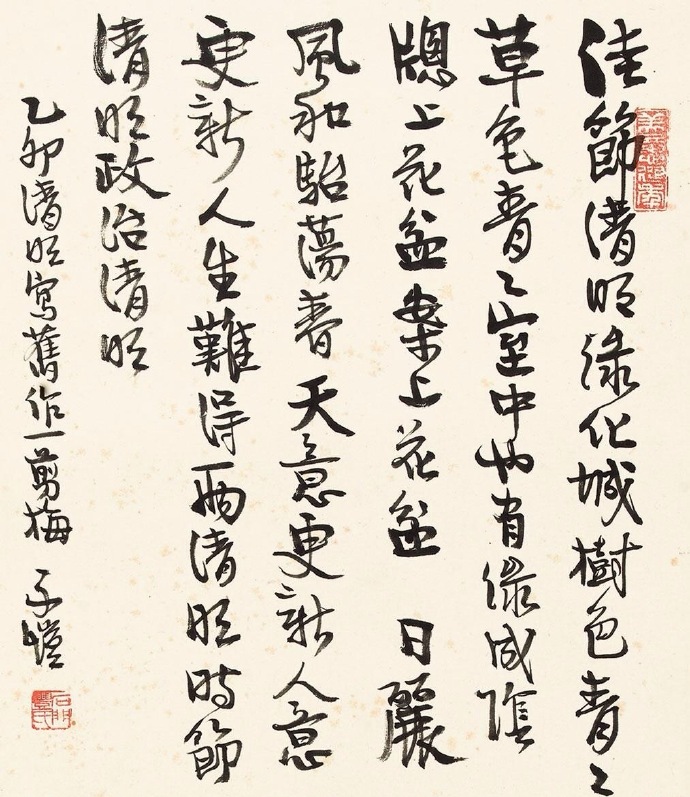 佳節清明綠化城樹色青々
草色青々室中也有綠成陰
牕上花盆案上花盆 日麗
風和駘蕩春天意更新人意
更新人生難得兩清明時節
清明政治清明
乙卯清明寫舊作一剪梅 子愷
石門豐氏